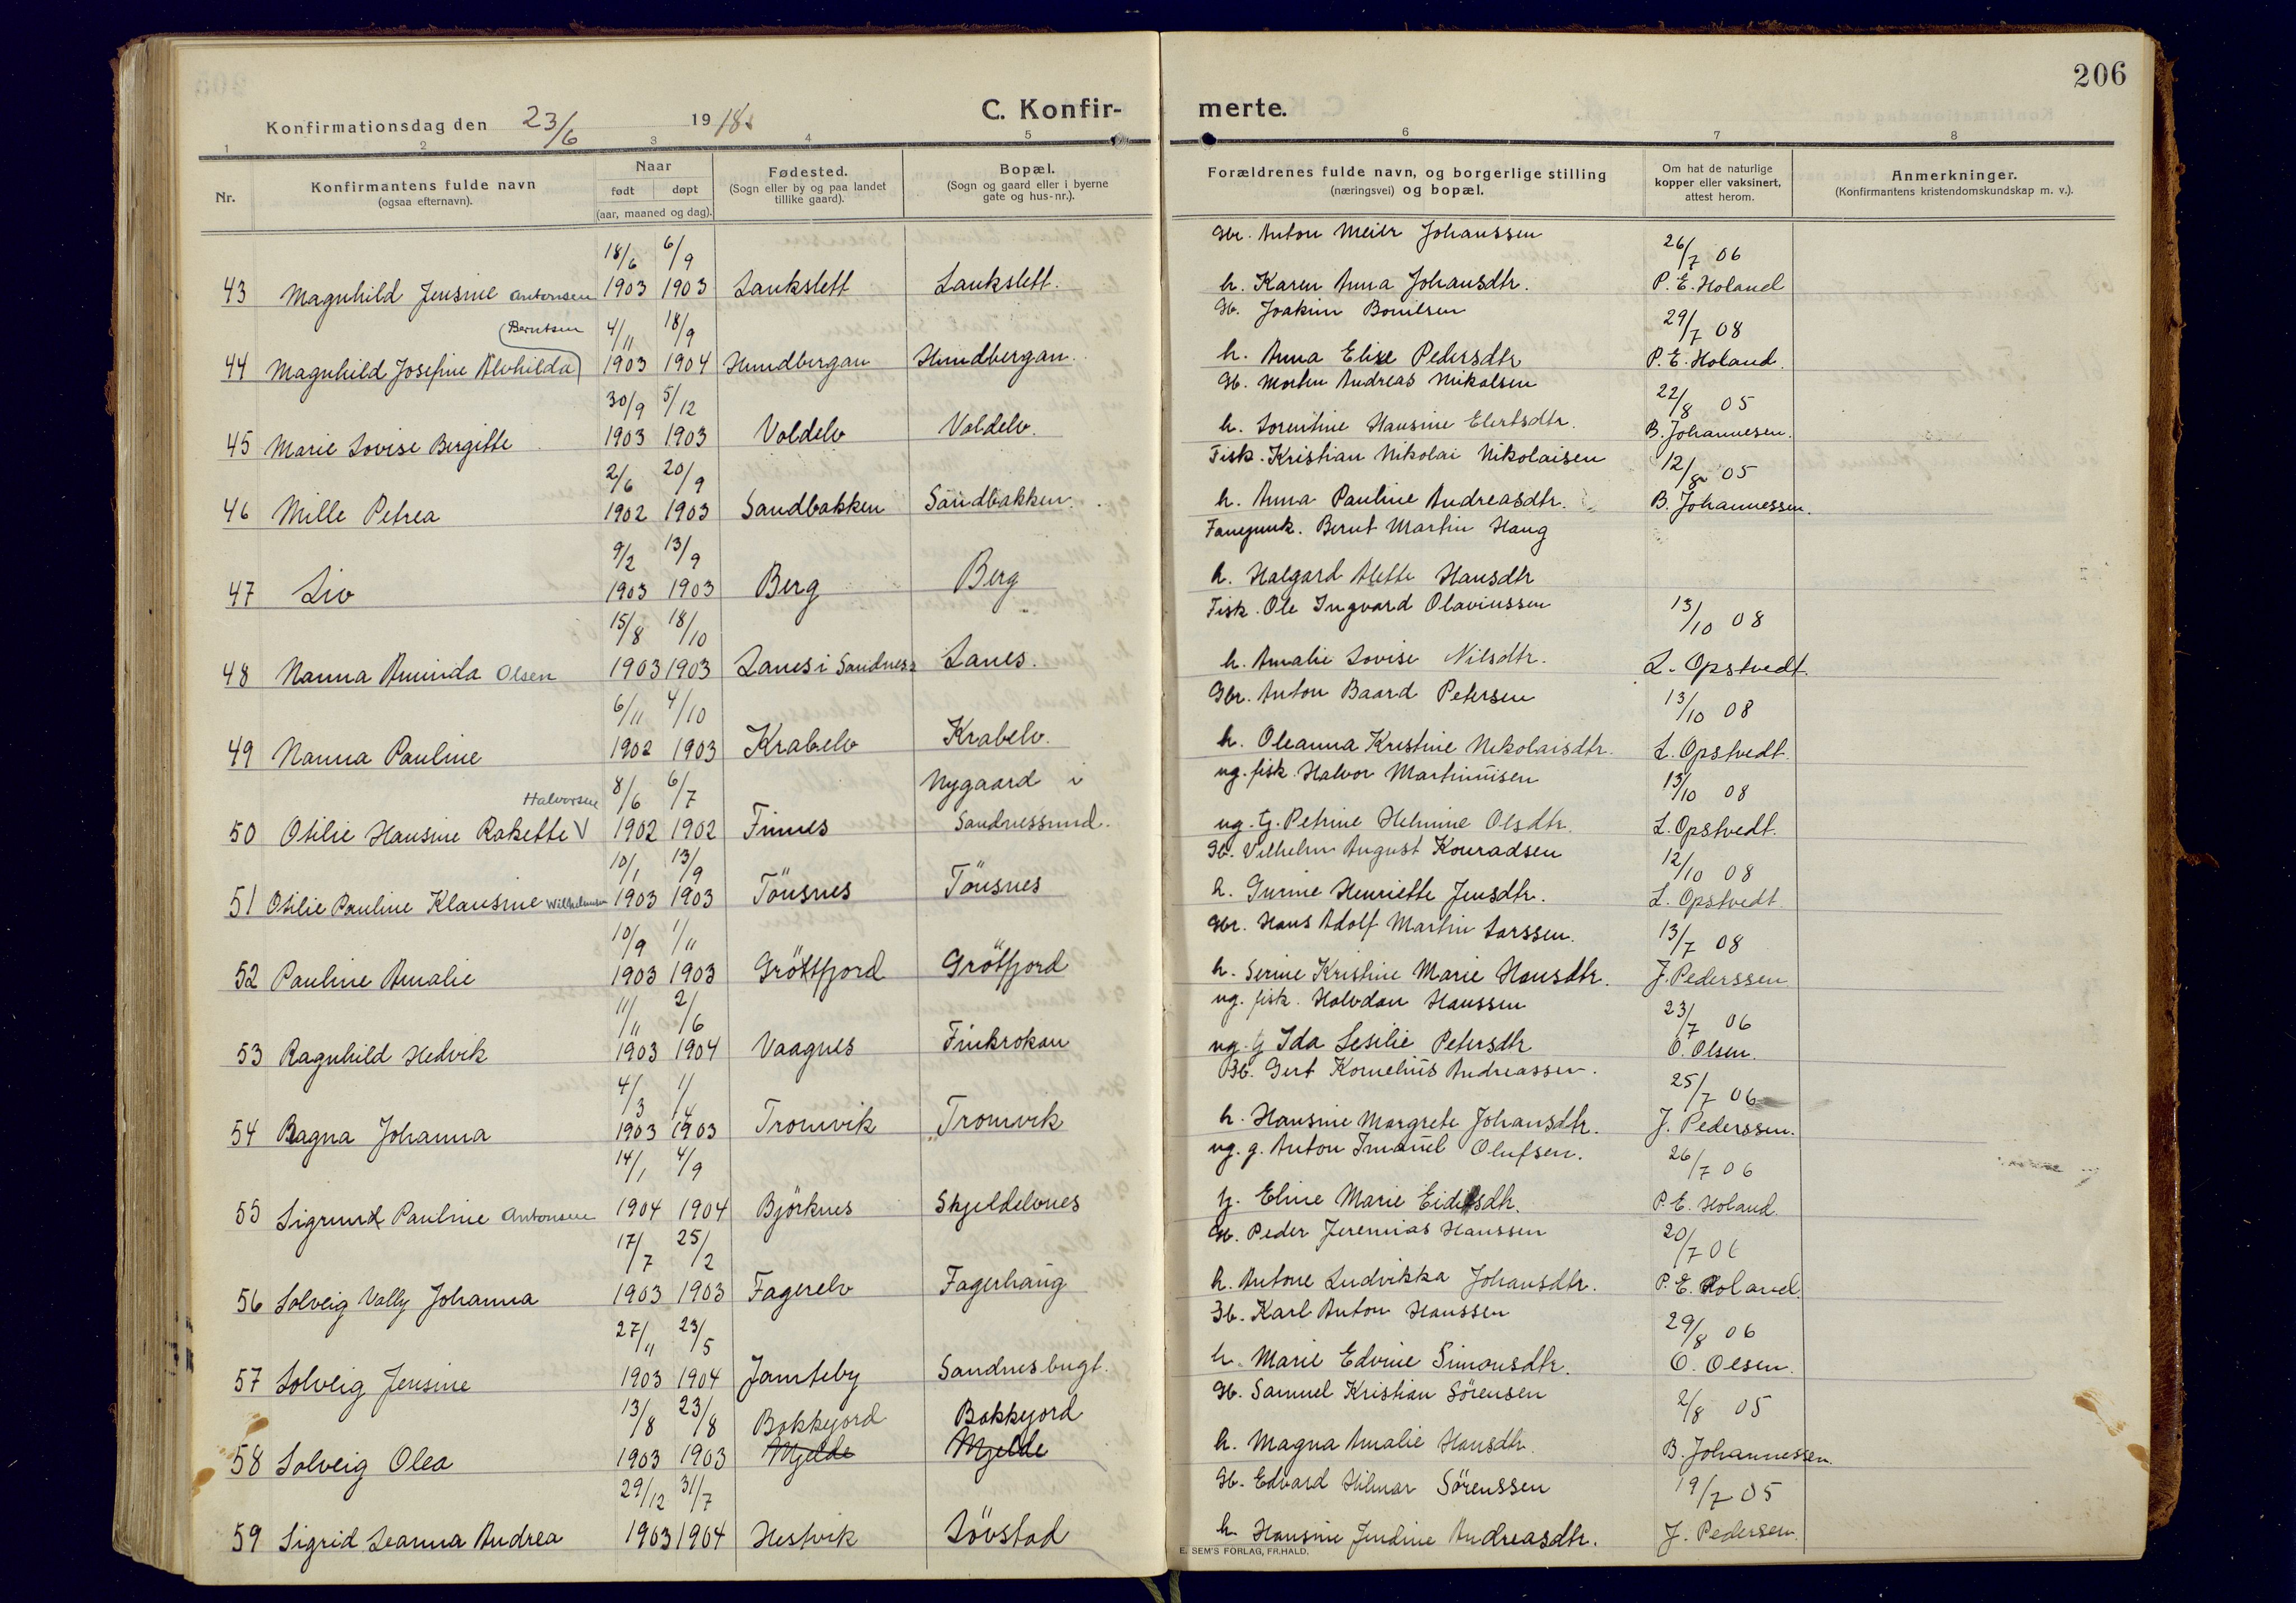 206
Konfirmationsdag den 23/6 1918.
C. Konfir-
merte.
1 2 3 4 5 6 7 8
Nr.
Konfirmantens fulde navn
(ogsaa efternavn).
Naar
født døpt
(aar, maaned og dag).
Fødested.
(Sogn eller by og paa landet
tillike gaard).
Bopæl.
(Sogn og gaard eller i byerne
gate og hus-nr.).
Forældrenes fulde navn, og borgerlige stilling
(næringsvei) og bopæl.
Om hat de naturlige
kopper eller vaksinert,
attest herom.
Anmerkninger.
(Konfirmantens kristendomskundskap m. v.).
18/6 6/9 Gbr. Anton Meier Johanssen 26/7 06
43 Magnhild Jensine Antonsen 1903 1903 Laukslett Laukslett. h. Karen Anna Johansdtr. P. E. Holand
Berntsen 4/11 18/9 Gb. Joakim Berntsen 29/7 08
44 Magnhild Josefine Alvhilda 1903 1904 Hundbergan Hundbergan. h. Anna Elise Pedersdtr P. E. Holand.
30/9 5/12 Gb. Morten Andreas Nikolsen 22/8 05
45 Marie Lovise Bergitte 1903 1903 Voldelv Voldelv. h. Lorentine Hansine Elertsdtr. B. Johannesen.
2/6 20/9 Fisk. Kristian Nikolai Nikolaisen 12/8 05
46 Mille Petrea 1902 1903 Sandbakken Sandbakken. h. Anna Pauline Andreasdtr. B. Johannessen.
9/2 13/9 Bernt Martin Haug
47 Liv 1903 1903 Berg Berg h. Halgard Alette Hansdtr
15/8 18/10 Fisk. Ole Ingvard Olaviussen 13/10 08
48 Nanna Aminda Olsen 1903 1903 Lanes i Sandness Lanes. h. Amalie Lovise Nilsdtr. L. Opstvedt.
6/11 4/10 Gbr. Anton Baard Petersen 13/10 08
49 Nanna Pauline 1902 1903 Krabelv Krabelv. h. Oleanna Kristine Nikolaisdtr. L. Opstvedt.
Halvorsen 8/6 6/7 Nygaard i ug. fisk. Halvor Martinuisen 13/10 08
50 Otilie Hansine Rakette V 1902 1902 Finnes Sandnessund. ug. tj. Petrine Helmine Olsdtr. L. Opstvedt.
10/1 13/9 Gb. Vilhelm August Konradsen 12/10 08
51 Otilie Pauline Klausine Wilhelmsen 1903 1903 Tönsnes Tönsnes h. Gurine Henriette Jensdtr. L. Opstvedt.
10/9 1/11 Gbr. Hans Adolf Martin Larssen. 13/7 08
52 Pauline Amalie 1903 1903 Gröttfjord Grötfjord h. Serine Kristine Marie Hansdtr. J. Pederssen
11/11 2/6 ug. fisk. Halvdan Hanssen 23/7 06
53 Ragnhild Hedvik 1903 1904 Vaagnes Finkrokan ug. tj Ida Lesilie Petersdtr O. Olsen.
4/3 1/4 Gb. Gert Kornelius Andreassen. 25/7 06
54 Ragna Johanna 1903 1903 Tromvik Tromvik h. Hansine Margrete Johansdtr. J. Pederssen.
14/1 4/9 ug. g. Anton Imanuel Olufsen. 26/7 06
55 Sigrund Pauline Antonsen 1904 1904 Björknes Skjeldelvnes tj. Eline Marie Eidisdtr. P. E. Holand.
17/7 25/2 Gb. Peder Jeremias Hanssen 20/7 06
56 Solveig Vally Johanna 1903 1903 Fagerelv Fagerhaug h. Antone Ludvikka Johansdtr. P. E. Holand.
27/11 23/5 Gb. Karl Anton Hanssen 29/8 06
57 Solveig Jensine 1903 1904 Jamteby Sandnesbugt. h. Marie Edvine Simonsdtr. O. Olsen.
13/8 23/8 Bakkejord Bakkejord Gb. Samuel Kristian Sörensen 2/8 05
58 Solveig Olea 1903 1903 Mjelde Mjelde h. Magna Amalie Hansdtr. B. Johannessen.
29/12 31/7 Gb. Edvard Hilmar Sörenssen 19/7 05
59 Sigrid Leanna Andrea 1903 1904 Hestvik Lövstad h. Hansine Jendine Andreasdtr. J. Pedersen.
E. SEM'S FORLAG, FR.HALD.